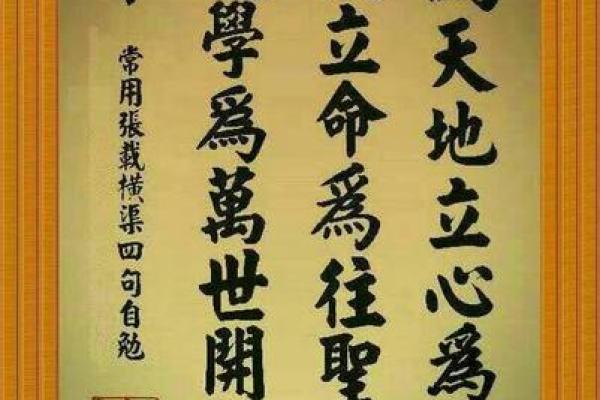 爲天地立心爲
立命爲往聖
學爲萬世開
常用張載橫渠四句自勉